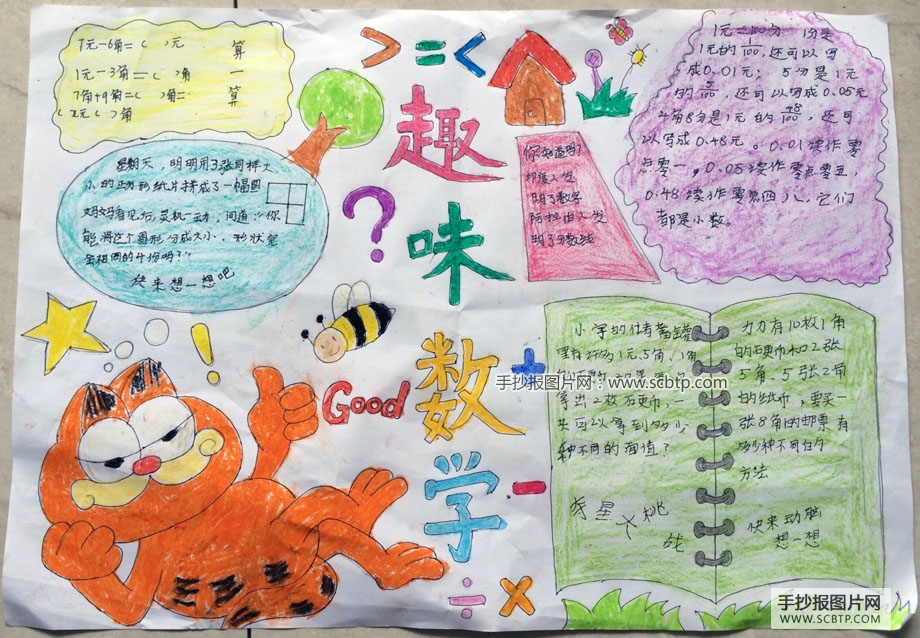 1元-6角=( )元
1元-3角=( )角
7角+9角=( )角=
( )元( )角
算
一
算
> = <
趣
味
数
学
?
!
Good
+
-
÷
×
星期天,明明用3张同样大
小的正方形纸片拼成了一幅图
妈妈看见后,灵机一动,问道:"你
能将这个图形分成大小、形状完
全相同的4份吗?"
快来想一想吧
你知道吗?
印度人发
明了数字
阿拉伯人发
明了
1元=100分 1分是
1元的1/100,还可以写
成0.01元; 5分是1元
的5/100,还可以写成0.05元
4角8分是1元的48/100,还可
以写成0.48元。0.01读作零
点零一,0.05读作零点零五,
0.48读作零点四八,它们
都是小数。
小军的储蓄罐
里有许多1元、5角、1角
拿出2枚硬币,一
共可以得到多少
种不同的面值?
星大挑
战
力力有10枚1角
的硬币和2张
5角、5张2角
的纸币,要买一
张8角的邮票有
多少种不同的
方法
快来动脑
想一想
手抄报图片网:www.scbtp.com
手抄报图片网
WWW.SCBTP.COM